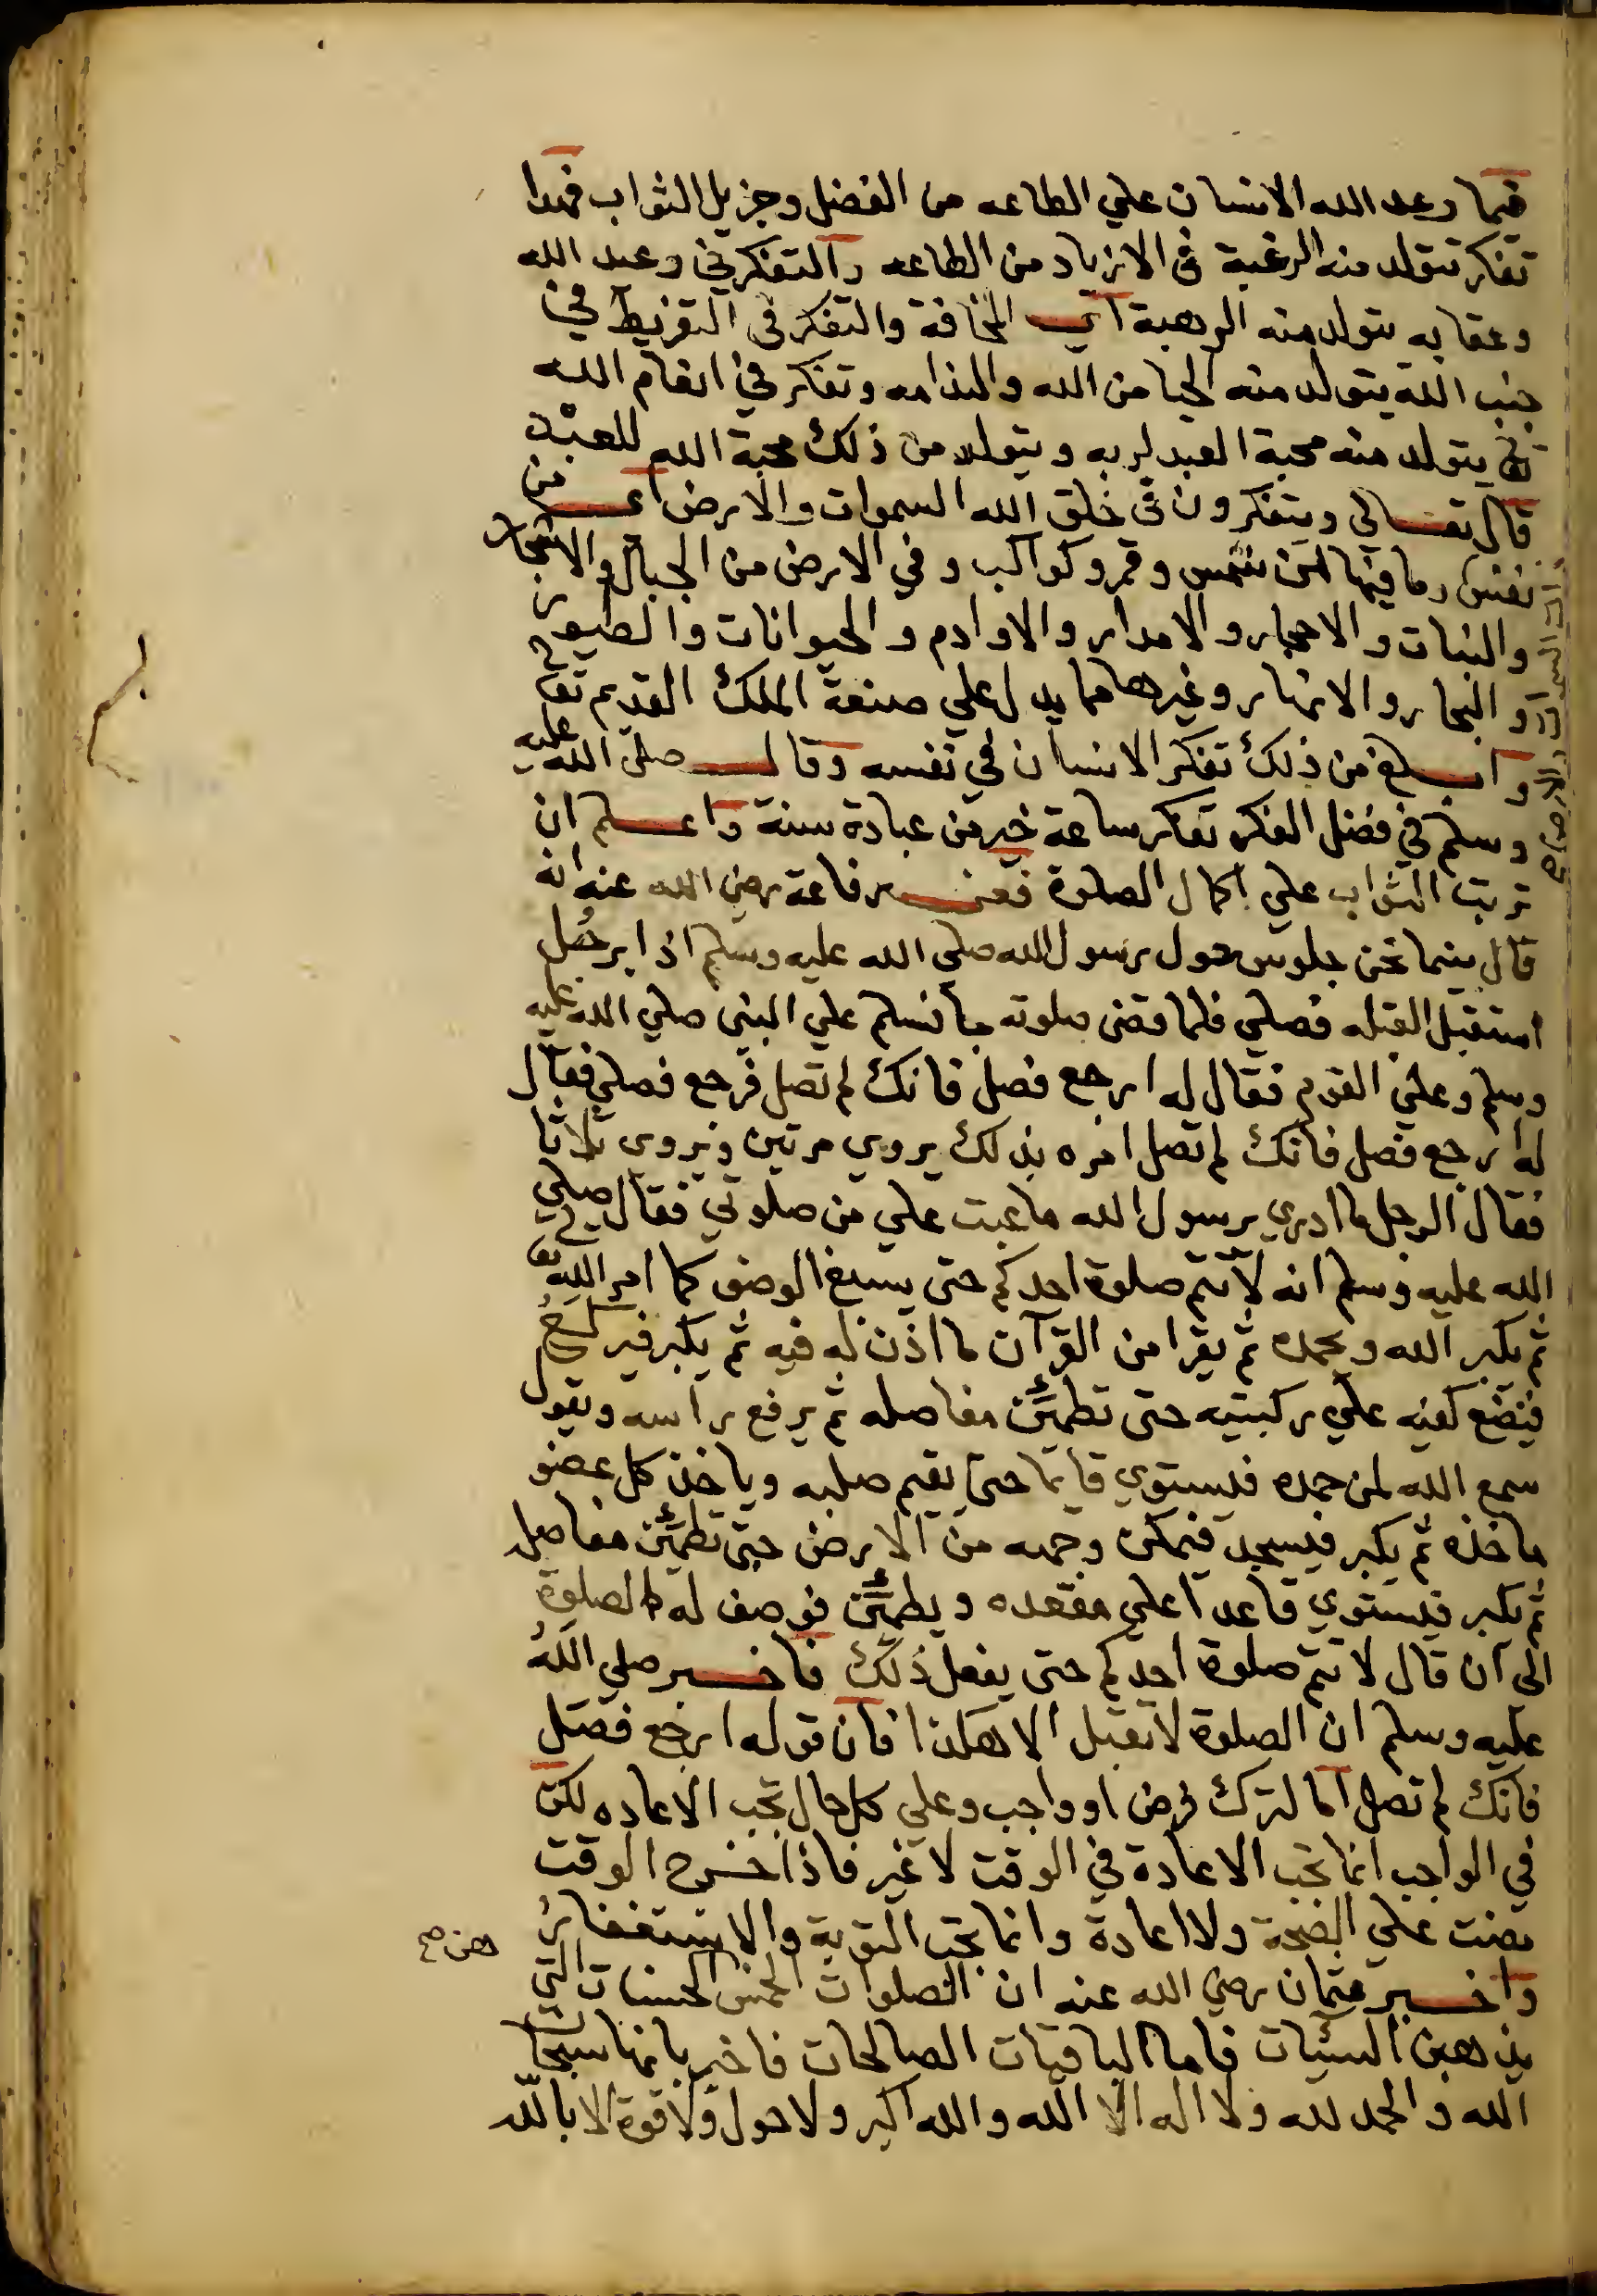 فيما وعد الله الانسان علي الطاعه من الفضل وجزيل الثواب فهذا
تفكر يتولد منه الرغبة في الازياد من الطاعه والتفكر في وعيد الله
وعقابه يتولد منه الرهبة اي المخافة والتفكر في التفريط في
جنب الله يتولد منه الحيا من الله والندامه وتفكر في انعام الله
يتولد منه محبة العبد لربه ويتولد من ذلك محبة الله للعبد
قال تعالي ويتفكرون في خلق الله السموات والارض من
نفس وما فيها من شمس وقمر وكواكب وفي الارض من الجبال والاشجار
والنبات والاحجار والامدار والاوادم والحيوانات والطيور
و البحار والانهار وغيرها مما يدل علي صنعة الملك القديم تعالي
و من ذلك تفكر الانسان في نفسه وقال صلى الله عليه
وسلم في فضل الفكر تفكر ساعة خير من عبادة سنة واعلم ان
ترتب الثواب علي اكمال الصلوة فعن رفاعة رضي الله عنه انه
قال بينما نحن جلوس حول رسول الله صلى الله عليه وسلم اذا برجل
استقبل القبله فصلي فلما قضى صلوته جا فسلم علي النبى صلي الله عليه
وسلم وعلي القوم فقال له ارجع فصل فانك لم تصل فرجع فصلي فقال
له ارجع فصل فانك لم تصل امره بذلك يروي مرتين ويروى ثلاثا
فقال الرجل ما ادري يرسول الله ما عبت علي من صلوتي فقال صلي
الله عليه وسلم انه لا تتم صلوة احدكم حتى يسبغ الوضو كما امر الله تعالي
ثم يكبر الله ويحمده ثم يقرا من القرآن ما اذن له فيه ثم يكبر فيركع
فيضع كفيه علي ركبتيه حتى تطمئن مفاصله ثم يرفع راسه ويقول
سمع الله لمن حمده فليستوي قايما حتى يقيم صلبه وياخذ كل عضو
ماخذه ثم يكبر فيسجد فيمكن وجهه من الارض حتى تطمئن مفاصله
ثم يكبر فيستوي قاعدا علي مقعده ويطمئن فوصف له الصلوة
الى ان قال لا تتم صلوة احدكم حتى يفعل ذلك فاخبر صلي الله
عليه وسلم ان الصلوة لا تقبل الا هكذا فان قوله ارجع فصل
فانك لم تصل اما لترك فرض او واجب وعلي كل حال تجب الاعاده لكن
في الواجب انما تجب الاعادة في الوقت لا غير فاذا خرج الوقت
مضت علي الصحة ولا اعادة وانما تجب التوبة والاستغفار
واخبر عثمان رضي الله عنه ان الصلوات الخمس الحسنات التي
هن صح
يذهبن السيئات فاما الباقيات الصالحات فاخبر بانها سبحان
الله والحمد لله ولا اله الا الله والله اكبر ولا حول ولا قوة الا بالله